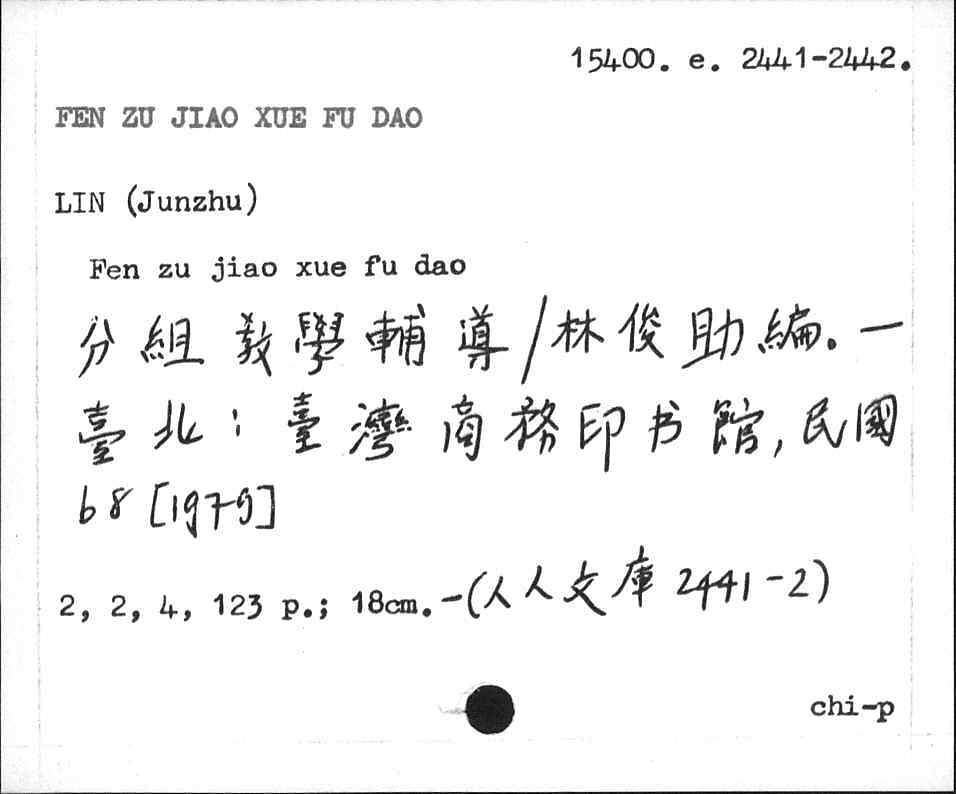 15400. e. 2441-2442.
FEN ZU JIAO XUE FU DAO
LIN (Junzhu)
Fen zu jiao xue fu dao
分組教學輔導/林俊助編.—
臺北:臺灣商務印书館,民國
68 [1979]
2, 2, 4, 123 p.; 18cm.-(人人文庫 2441-2)
chi-p